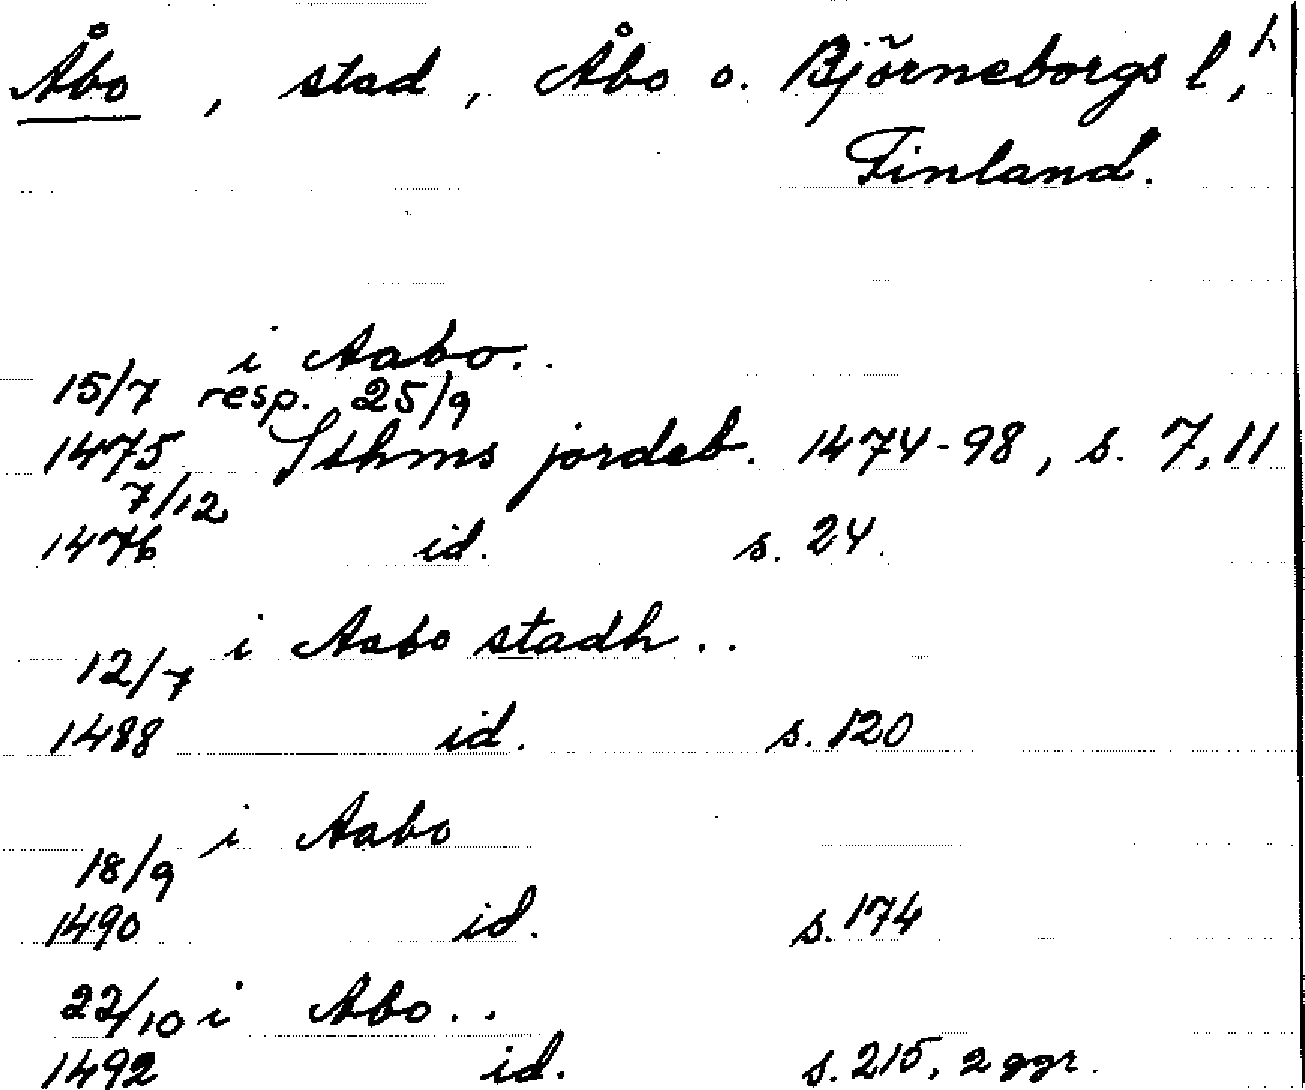 Åbo, stad, Åbo o. Björneborgs l, 1.
Finland.
i Aabo..
15/7 resp. 25/9
1475 Sthms jordeb. 1474-98, s. 7, 11
7/12
1476 id. s. 24.
i Aabo stadh..
12/7
1488 id. s. 120
i Aabo
18/9
1490 id. s. 174
22/10 i Abo..
1492 id. s. 215, 2 ggr.